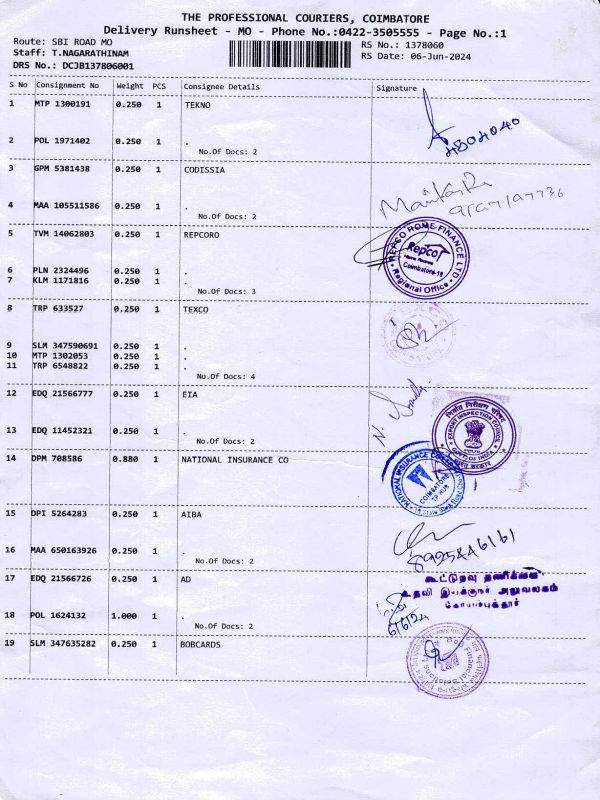 THE PROFESSIONAL COURIERS, COIMBATORE
Delivery Runsheet - MO - Phone No.:0422-3505555 - Page No.:1
Route: SBI ROAD MO
RS No.: 1378060
Staff: T.NAGARATHINAM
RS Date: 06-Jun-2024
DRS No.: DCJB137806001
S No Consignment No Weight PCS Consignee Details Signature
1 MTP 1300191 0.250 1 TEKNO
2 POL 1971402 0.250 1 .
No.Of Docs: 2
3 GPM 5381438 0.250 1 CODISSIA
4 MAA 105511586 0.250 1 .
No.Of Docs: 2
5 TVM 14062803 0.250 1 REPCORO
REPCO HOME FINANCE LTD
Repco
Home Finance
Coimbatore-18
Regional Office
6 PLN 2324496 0.250 1 .
7 KLM 1171816 0.250 1 .
No.Of Docs: 3
8 TRP 633527 0.250 1 TEXCO
9 SLM 347590691 0.250 1 .
10 MTP 1302053 0.250 1 .
11 TRP 6548822 0.250 1 .
No.Of Docs: 4
12 EDQ 21566777 0.250 1 EIA
निर्यात निरीक्षण परिषद
EXPORT INSPECTION COUNCIL
GOVT. OF INDIA
13 EDQ 11452321 0.250 1 .
No.Of Docs: 2
14 DPM 708586 0.880 1 NATIONAL INSURANCE CO
COIMBATORE
TP HUB
15 DPI 5264283 0.250 1 AIBA
8925846161
16 MAA 650163926 0.250 1 .
No.Of Docs: 2
17 EDQ 21566726 0.250 1 AD
கூட்டுறவு தணிக்கை
உதவி இயக்குநர் அலுவலகம்
கோயம்புத்தூர்
6/6/24
18 POL 1624132 1.000 1 .
No.Of Docs: 2
19 SLM 347635282 0.250 1 BOBCARDS